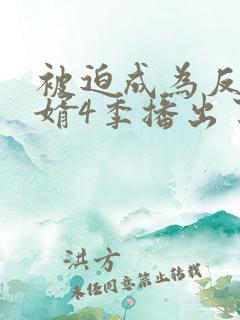 被迫成为反
婿4季播出
洪方
未经同意禁止转载